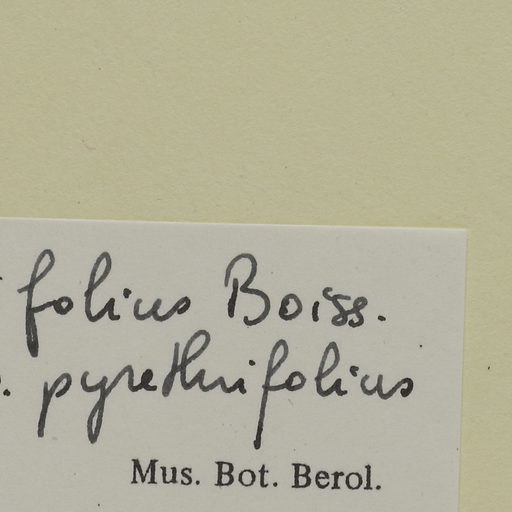 folius Boiss.
. pyrethrifolius
Mus. Bot. Berol.